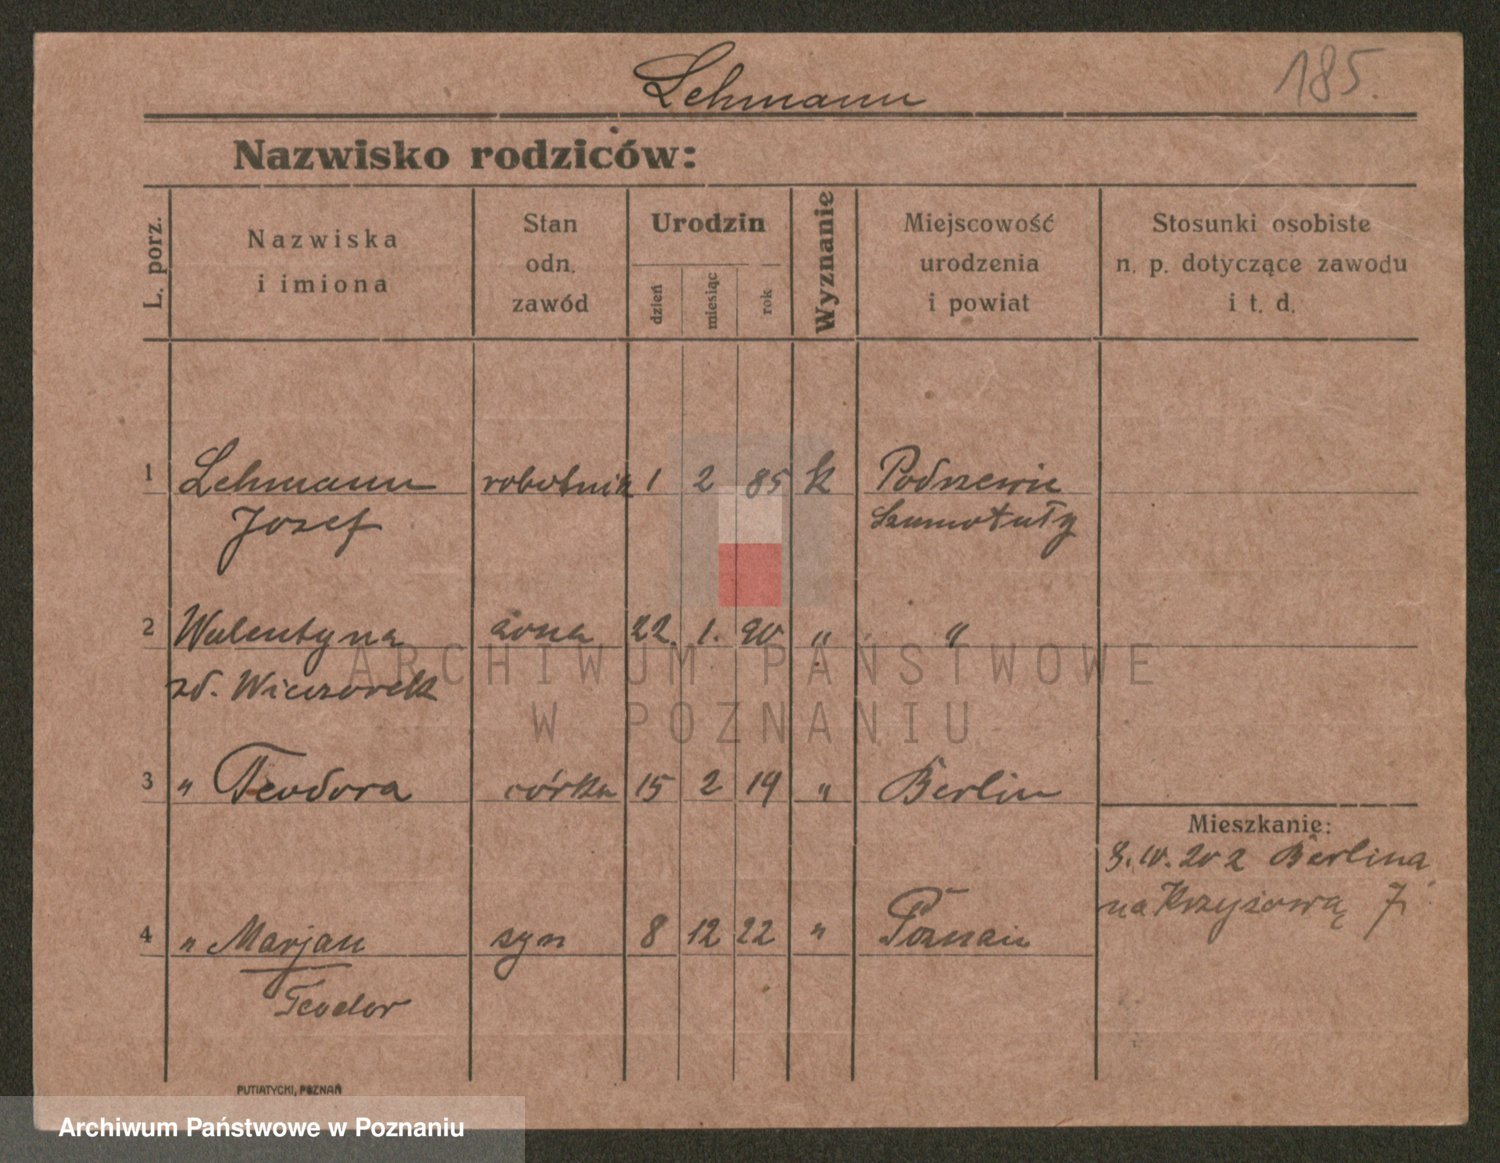 Lehmann
185.
Nazwisko rodziców:
L. porz.
Nazwiska
i imiona
Stan
odn.
zawód
Urodzin
dzień
miesiąc
rok
Wyznanie
Miejscowość
urodzenia
i powiat
Stosunki osobiste
n. p. dotyczące zawodu
i t. d.
1 Lehmann robotnik 1 2 85 k
Josef Szamotuły
2 Walentyna żona 22. 1. 90 " "
zd. Wieczorek
3 " Teodora córka 15 2 19 " Berlin
Mieszkanie:
202 Berlina
na Krzyżową 7.
4 " Marjan syn 8 12 22 " Poznań
Teodor
PUTIATYCKI, POZNAŃ
ARCHIWUM PAŃSTWOWE
W POZNANIU
Archiwum Państwowe w Poznaniu